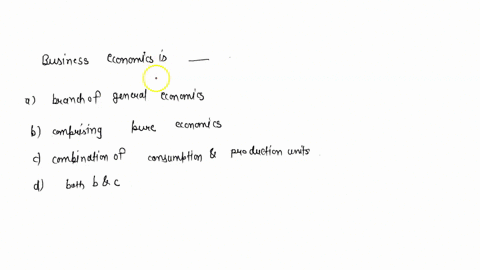 Business economics is ___
a) branch of general economics
b) comprising pure economics
c) combination of consumption & production units
d) both b & c